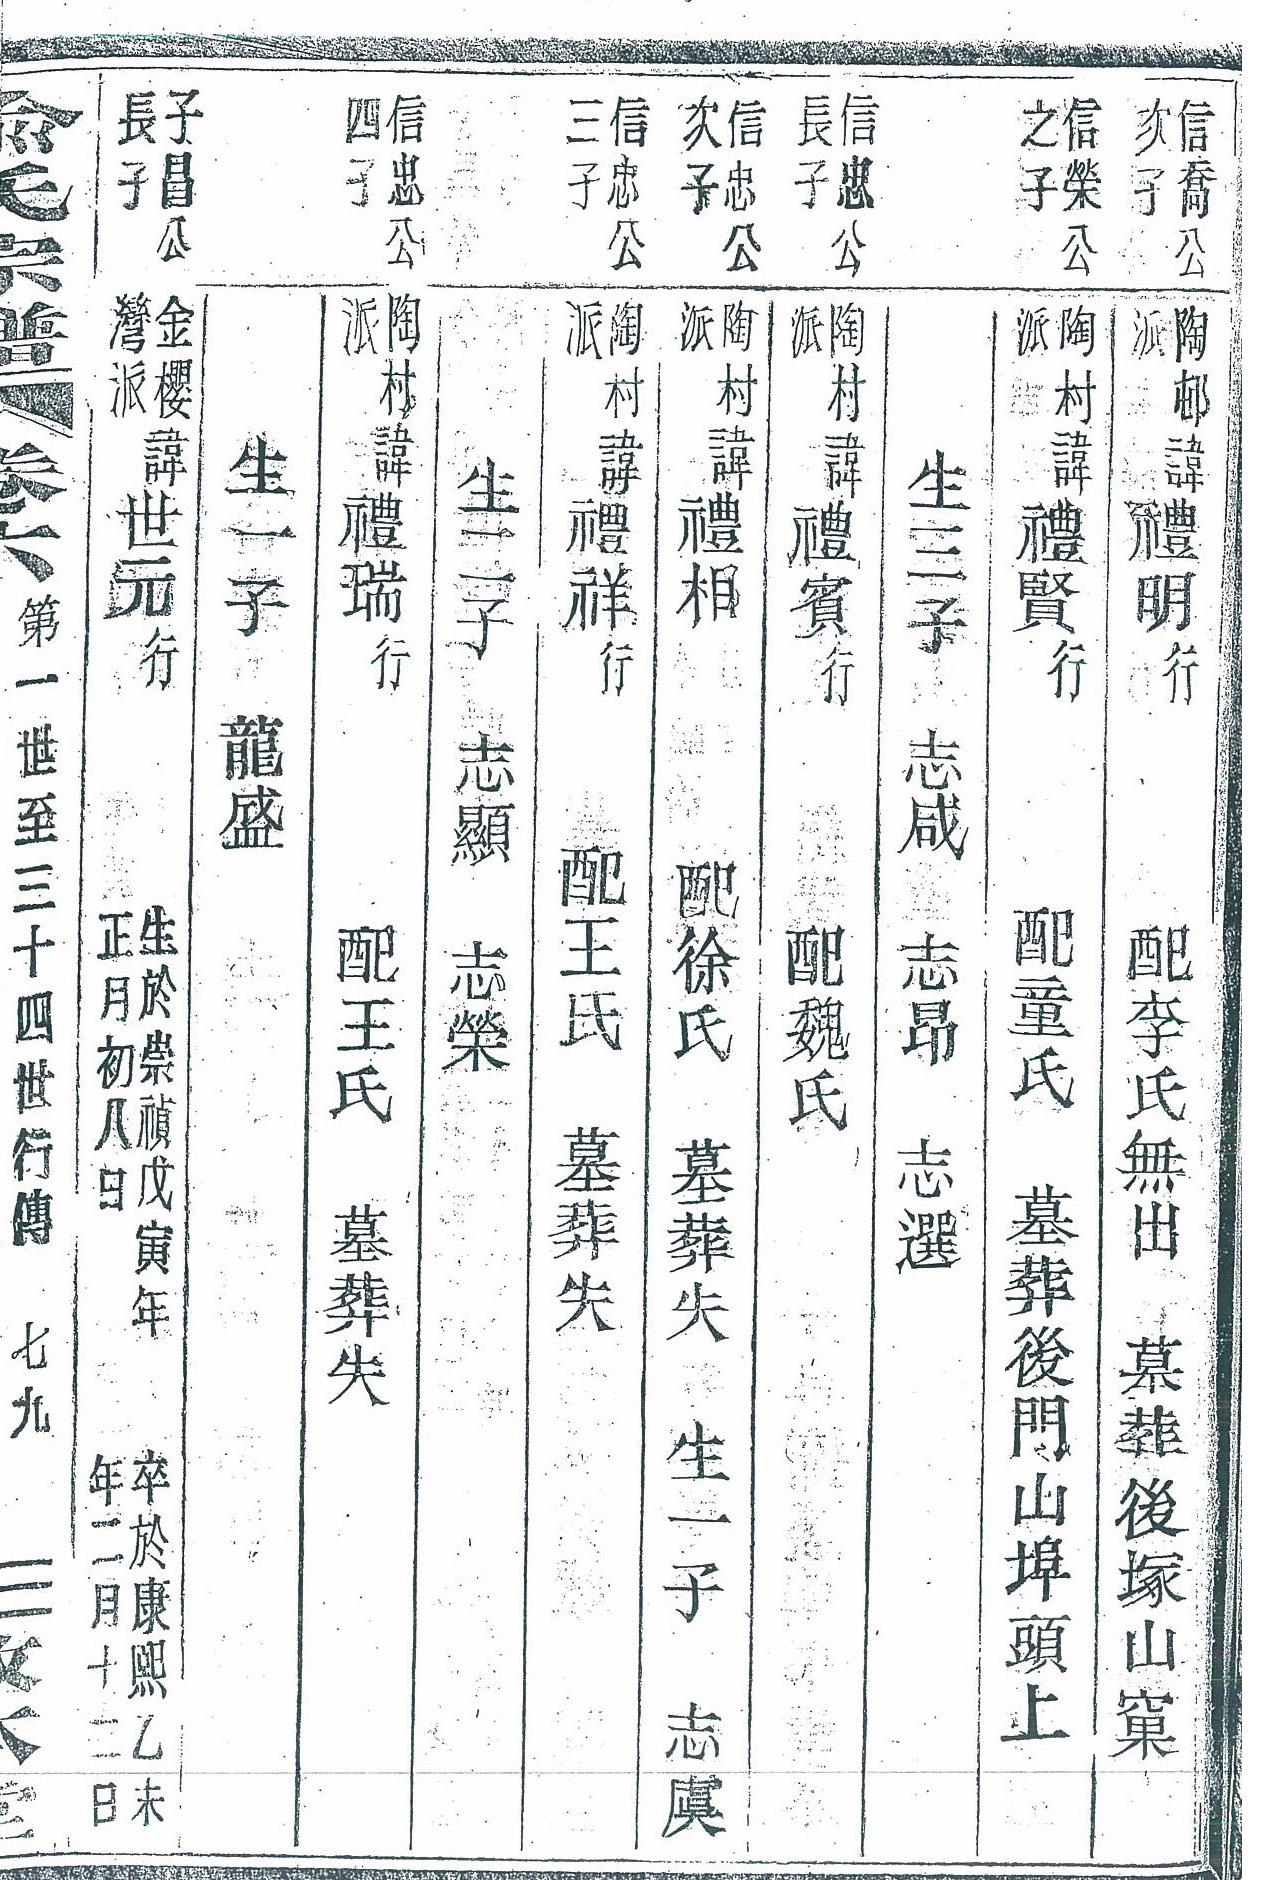 信喬公
次子
陶邨
派
諱禮明行 配李氏無出 墓葬後塚山窠
信榮公
之子
陶村
派
諱禮賢行 配童氏 墓葬後門山埠頭上
生三子 志咸 志昂 志選
信忠公
長子
陶村
派
諱禮賓行 配魏氏
信忠公
次子
陶村
派
諱禮相 配徐氏 墓葬失 生一子 志虞
信忠公
三子
陶村
派
諱禮祥行 配王氏 墓葬失
生二子 志顯 志榮
信忠公
四子
陶村
派
諱禮瑞行 配王氏 墓葬失
生一子 龍盛
子昌公
長子
金櫻
灣派
諱世元行
生於崇禎戊寅年
正月初八日
卒於康熙乙未
年二月十二日
氏宗譜 卷六 第一世至三十四世行傳 七九